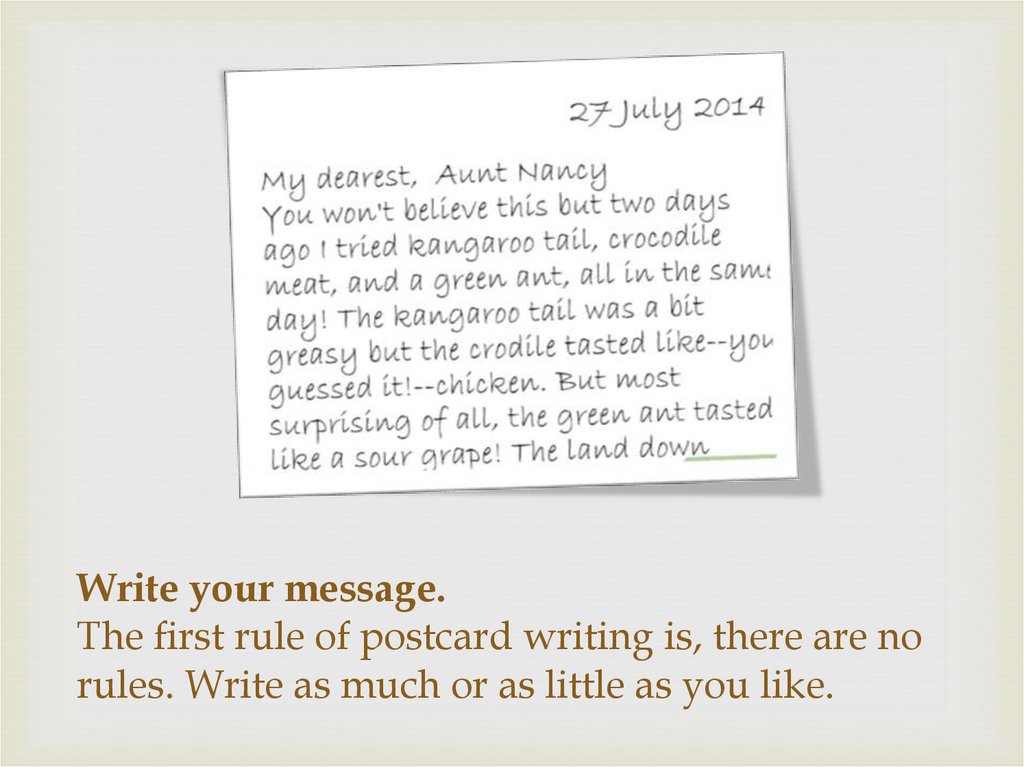 27 July 2014
My dearest, Aunt Nancy
You won't believe this but two days
ago I tried kangaroo tail, crocodile
meat, and a green ant, all in the same
day! The kangaroo tail was a bit
greasy but the crodile tasted like--you
guessed it!--chicken. But most
surprising of all, the green ant tasted
like a sour grape! The land down
Write your message.
The first rule of postcard writing is, there are no
rules. Write as much or as little as you like.